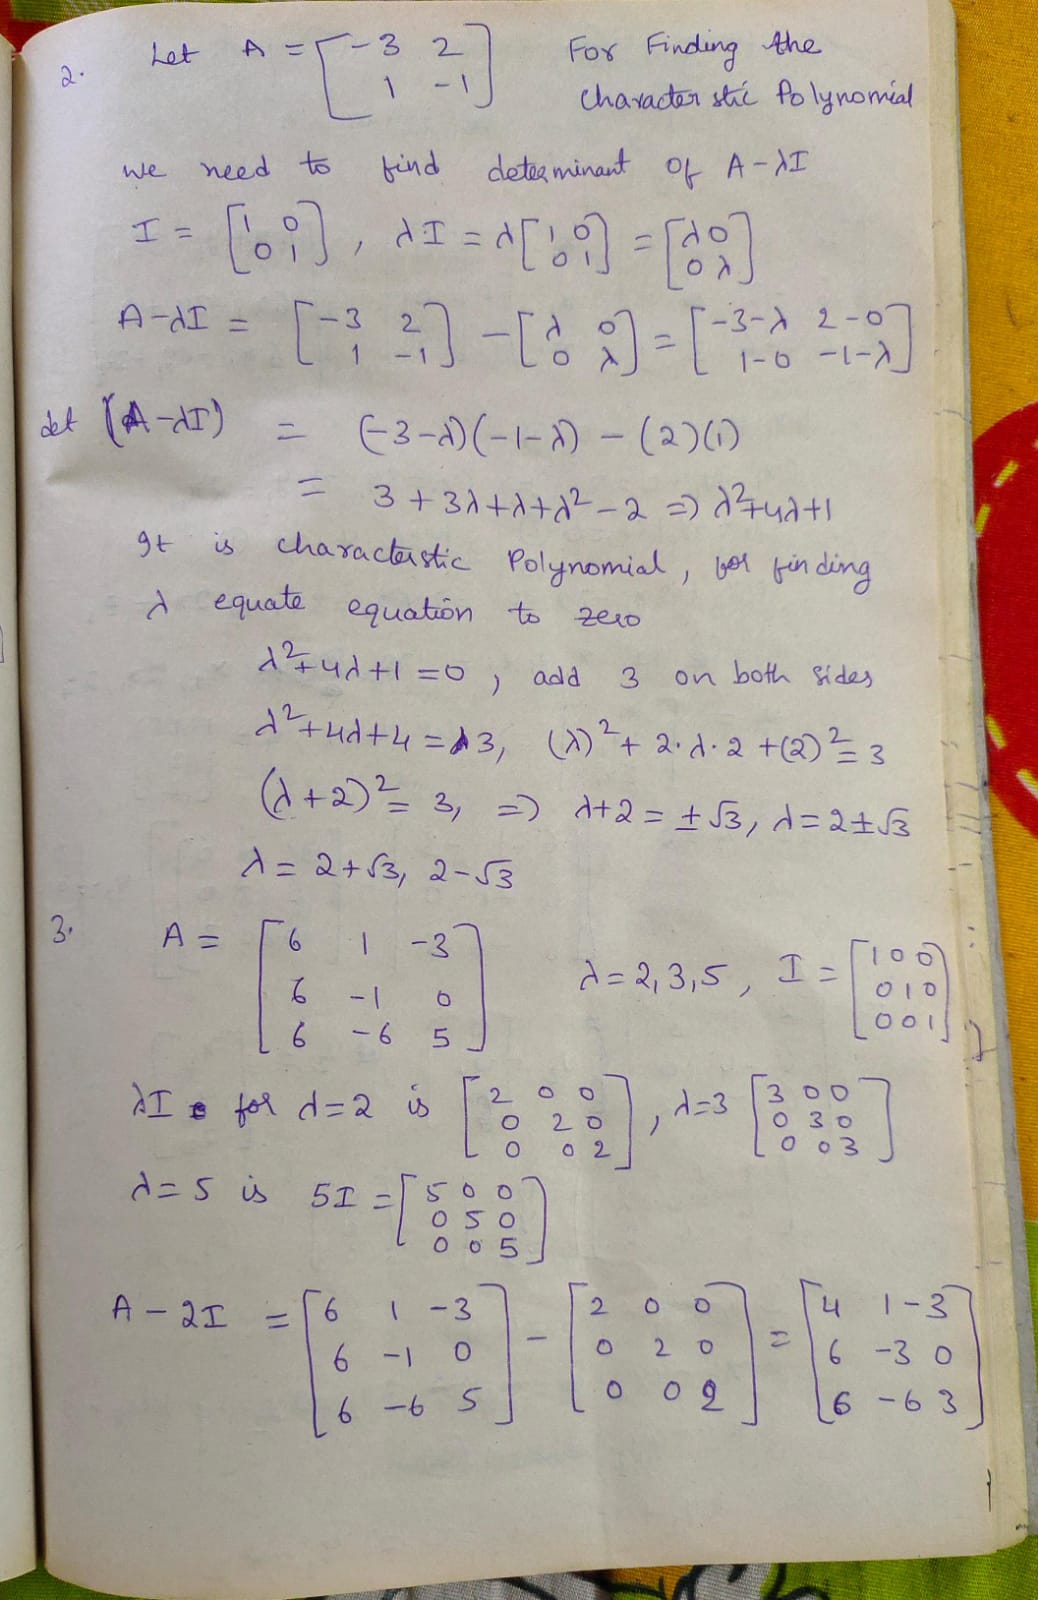 2. Let A = [ -3 2 For Finding the
1 -1 ] characterstic Polynomial
we need to find determinant of A-λI
I = [ 1 0
0 1 ] , λI = λ [ 1 0
0 1 ] = [ λ 0
0 λ ]
A-λI = [ -3 2
1 -1 ] - [ λ 0
0 λ ] = [ -3-λ 2-0
1-0 -1-λ ]
det (A-λI) = (-3-λ)(-1-λ) - (2)(1)
= 3+3λ+λ+λ²-2 => λ²+4λ+1
It is characteristic Polynomial, for finding
λ equate equation to zero
λ²+4λ+1=0, add 3 on both sides
λ²+4λ+4=3, (λ)²+2·λ·2+(2)²=3
(λ+2)²=3, => λ+2=±√3, λ=2±√3
λ=2+√3, 2-√3
3. A = [ 6 1 -3
6 -1 0
6 -6 5 ] λ=2,3,5, I = [ 1 0 0
0 1 0
0 0 1 ]
λI for λ=2 is [ 2 0 0
0 2 0
0 0 2 ] , λ=3 [ 3 0 0
0 3 0
0 0 3 ]
λ=5 is 5I = [ 5 0 0
0 5 0
0 0 5 ]
A-2I = [ 6 1 -3
6 -1 0
6 -6 5 ] - [ 2 0 0
0 2 0
0 0 2 ] = [ 4 1 -3
6 -3 0
6 -6 3 ]